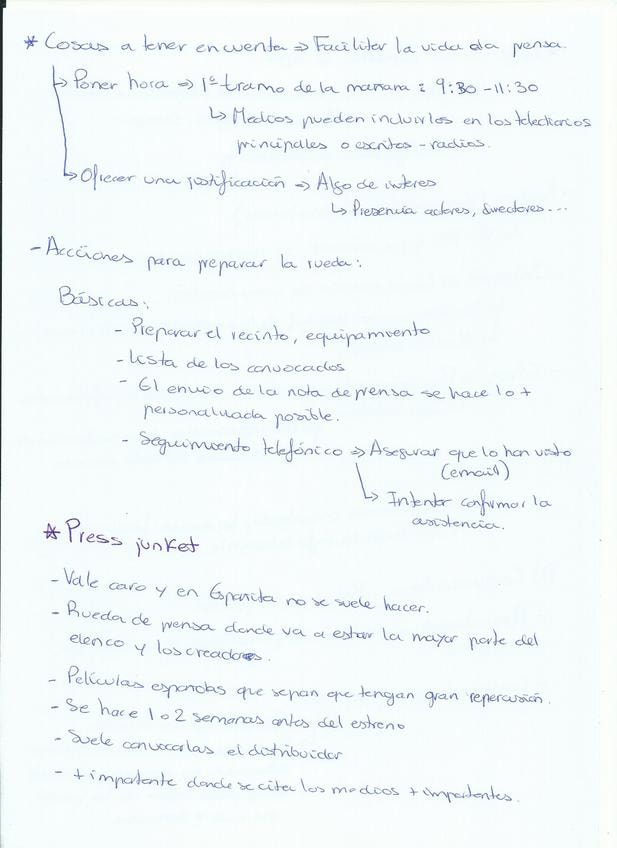 * Cosas a tener en cuenta => Facilitar la vida a la prensa.
↳ Poner hora => 1º tramo de la mañana: 9:30 - 11:30
↳ Medios pueden incluirlos en los telediarios
principales o escritos - radios.
↳ Ofrecer una justificación => Algo de interes
↳ Presencia actores, directores...
- Acciones para preparar la rueda:
Básicas:
- Preparar el recinto, equipamiento
- Lista de los convocados
- El envio de la nota de prensa se hace lo +
personalizada posible.
- Seguimiento telefónico => Asegurar que lo han visto
(email)
↳ Intentar confirmar la
asistencia.
* Press junket
- Vale caro y en Españita no se suele hacer.
- Rueda de prensa donde va a estar la mayor parte del
elenco y los creadores.
- Películas españolas que sepan que tengan gran repercusión.
- Se hace 1 o 2 semanas antes del estreno
- Suele convocarlas el distribuidor
- + importante donde se cita los medios + importantes.